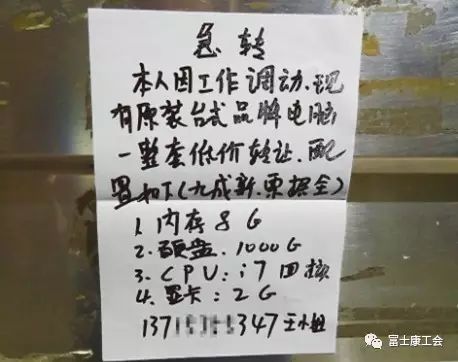 急转
本人因工作调动.现
有原装台式品牌电脑
一整套低价转让.配
置如下(九成新.票据全)
1.内存8G
2.硬盘.1000G
3.CPU:i7四核
4.显卡:2G
137 347王小姐
富士康工会